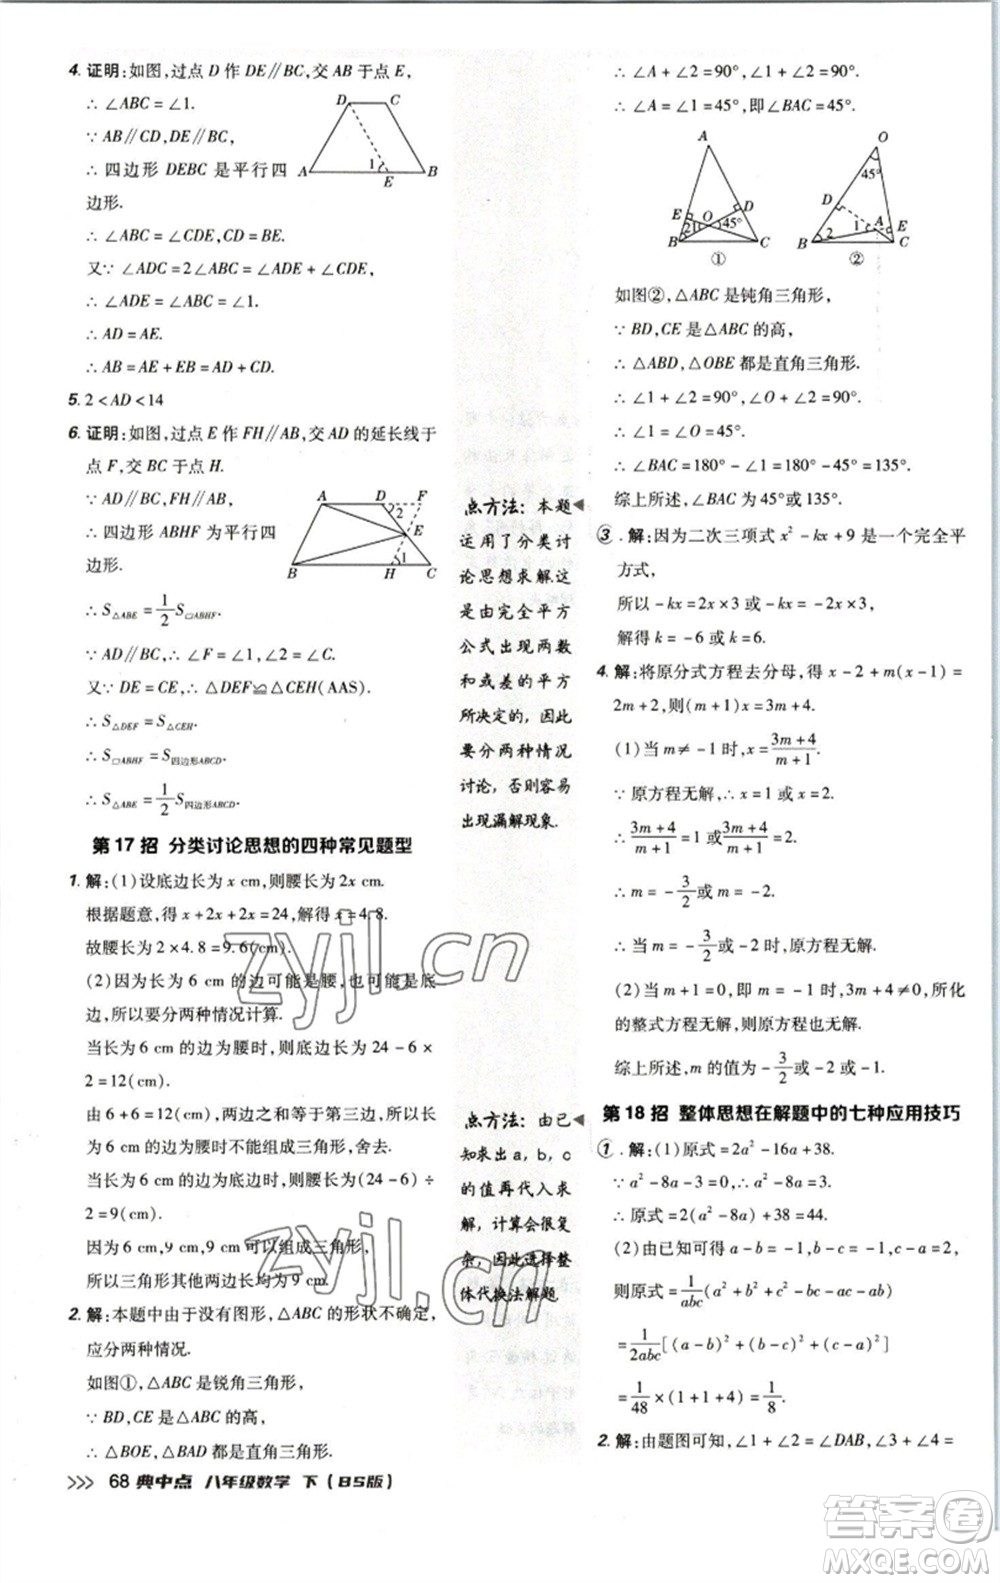 4. 证明:如图,过点 D 作 DE∥BC,交 AB 于点 E,
∴ ∠ABC=∠1.
∵ AB∥CD,DE∥BC,
∴ 四边形 DEBC 是平行四
边形.
∴ ∠ABC=∠CDE,DC=EB.
又∵ ∠ADC=2∠ABC,
∴ ∠ADE=∠1.
∴ AD=AE.
∴ AB=AE+EB=AD+CD.
D C
1
A E B
5. 2<AD<14
6. 证明:如图,过点 E 作 FH∥AB,交 AD 的延长线于
点 F,交 BC 于点 H.
∵ AD∥BC,FH∥AB,
∴ 四边形 ABHF 为平行四
边形.
∴ S△ABE=1/2 S▱ABHF.
A D F
2
E
B H 1 C
∵ AD∥BC,∴ ∠F=∠1,∠2=∠C.
又∵ DE=CE,∴ △DEF≌△CEH(AAS).
∴ S△DEF=S△CEH.
∴ S▱ABHF=S四边形ABCD.
∴ S△ABE=1/2 S四边形ABCD.
第 17 招 分类讨论思想的四种常见题型
1. 解:(1)设底边长为 x cm,则腰长为 2x cm.
根据题意,得 x+2x+2x=24,解得 x=4.8.
故腰长为 2×4.8=9.6(cm).
(2)因为长为 6 cm 的边可能是腰,也可能是底
边,所以要分两种情况计算.
当长为 6 cm 的边为腰时,则底边长为 24-6×
2=12(cm).
由 6+6=12,两边之和等于第三边,
所以 6 cm 为腰时不能组成三角形,故舍去.
当长为 6 cm 的边为底边时,则腰长为(24-6)÷
2=9(cm).
因为 6 cm,9 cm,9 cm 可以组成三角形,
所以三角形的两腰长均为 9 cm.
2. 解:本题中由于没有图形,△ABC 的形状不确定,
应分两种情况.
如图①,△ABC 是锐角三角形,
∵ BD,CE 是 △ABC 的高,
∴ △BOE,△BAD 都是直角三角形.
>>> 68 典中点 八年级数学 下(BS版)
点方法:本题
运用了分类讨
论思想求解.这
是由完全平方
公式出现两数
和或差的平方
所决定的,因此
要分两种情况
讨论,否则容易
出现漏解现象.
点方法:由已
知求出 a,b,c
的值再代入求
解,计算会很复
杂,因此选择整
体代换法解题.
∴ ∠A+∠2=90°,∠1+∠2=90°.
∴ ∠A=∠1=45°,即∠BAC=45°.
A
E O D
2 1 45°
B C
①
O
45°
D
1 A E
2
B C
②
如图②,△ABC 是钝角三角形,
∵ BD,CE 是△ABC 的高,
∴ △ABD,△OBE 都是直角三角形.
∴ ∠1+∠2=90°,∠2+∠O=90°.
∴ ∠1=∠O=45°.
∴ ∠BAC=180°-∠1=180°-45°=135°.
综上所述,∠BAC 为 45°或 135°.
3. 解:因为二次三项式 x²-kx+9 是一个完全平
方式,
所以-kx=2x×3 或-kx=-2x×3,
解得 k=-6 或 k=6.
4. 解:将原分式方程去分母,得 x-2+m(x-1)=
2m+2,则(m+1)x=3m+4.
(1)当 m≠-1 时,x=(3m+4)/(m+1).
∵ 原方程无解,∴ x=1 或 x=2.
∴ (3m+4)/(m+1)=1 或 (3m+4)/(m+1)=2.
∴ m=-3/2 或 m=-2.
∴ 当 m=-3/2 或 m=-2 时,原方程无解.
(2)当 m+1=0,即 m=-1 时,3m+4≠0,所化
的整式方程无解,则原方程无解.
综上所述,m 的值为-3/2 或-2 或-1.
第 18 招 整体思想在解题中的七种应用技巧
1. 解:(1)原式=2a²-16a+38.
∵ a²-8a-3=0,∴ a²-8a=3.
∴ 原式=2(a²-8a)+38=44.
(2)由已知可得 a-b=-6,a-c=-3,
则原式=1/abc(a²+b²+c²-bc-ac-ab)
=1/2abc[(a-b)²+(b-c)²+(a-c)²]
=1/48×[(-6)²+...]=1/8.
2. 解:由题图可知,∠1+∠2=∠DAB,∠3+∠4=
zyjl.cn
zyjl.cn
答案圈
MXQE.COM